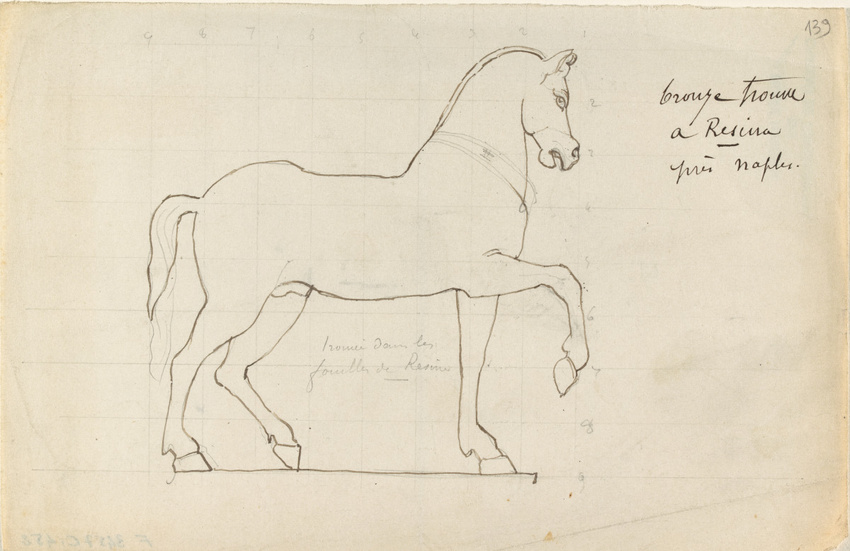 139
9 8 7 6 5 4 3 2 1
bronze trouvé
a Resina
près naples.
2
3
4
5
6
trouvé dans les
fouilles de Resina
7
8
9